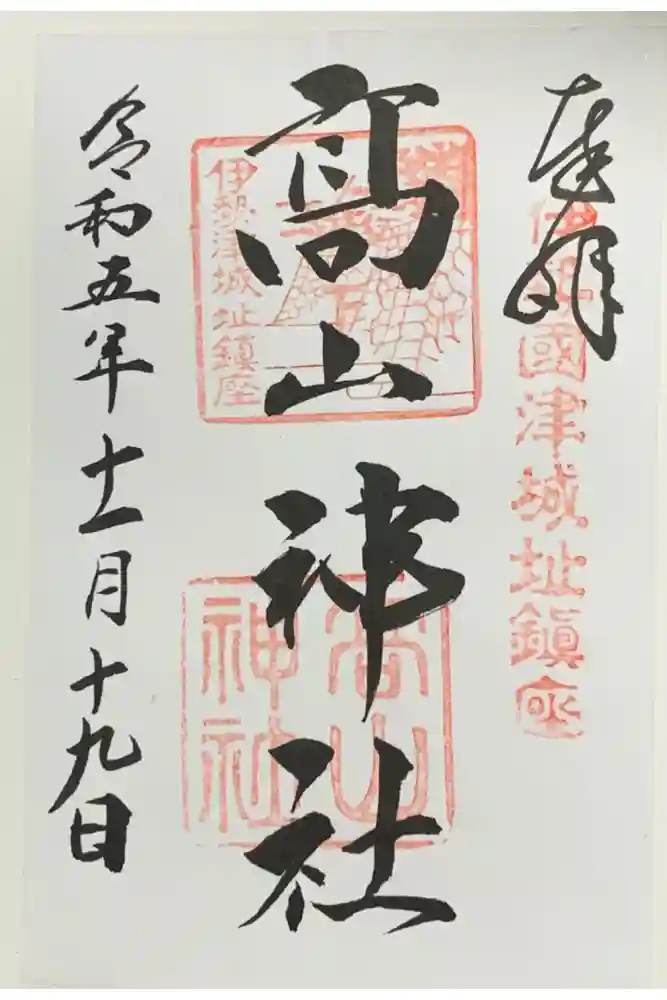 奉拝
伊勢國津城址鎮座
高山神社
伊勢津城址鎮座
高山
神社
令和五年十一月十九日